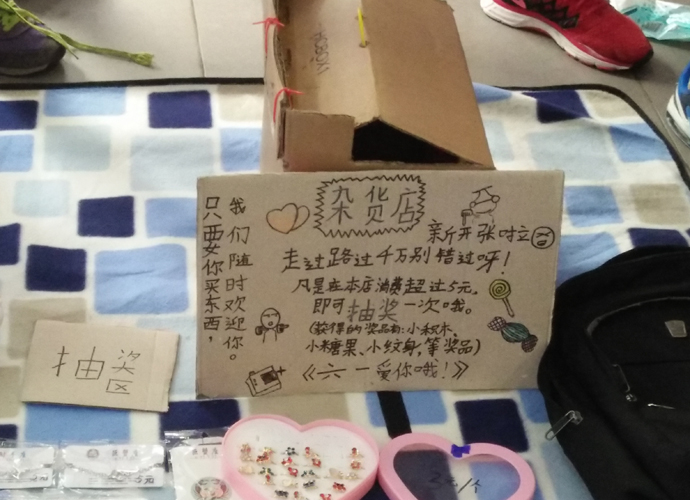 杂货店
新开张啦
走过路过千万别错过呀！
凡是在本店消费超过5元。
即可抽奖一次哦。
(获得的奖品有:小积木、
小糖果、小纹身,等奖品)
《六一爱你哦!》
只要你买东西，
我们随时欢迎你。
抽奖
区